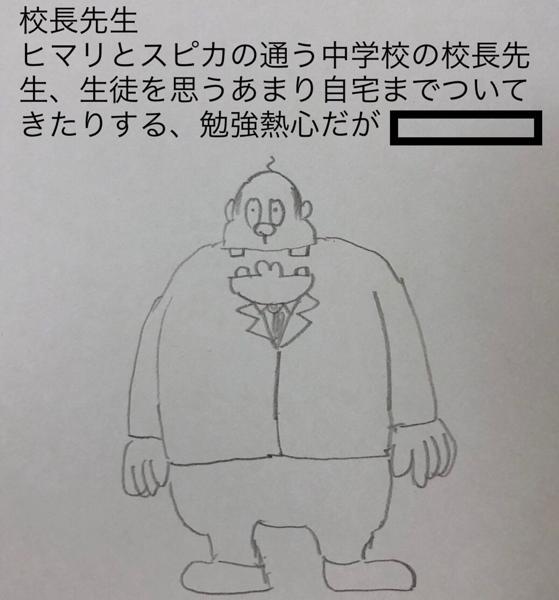 校長先生
ヒマリとスピカの通う中学校の校長先
生、生徒を思うあまり自宅までついて
きたりする、勉強熱心だが